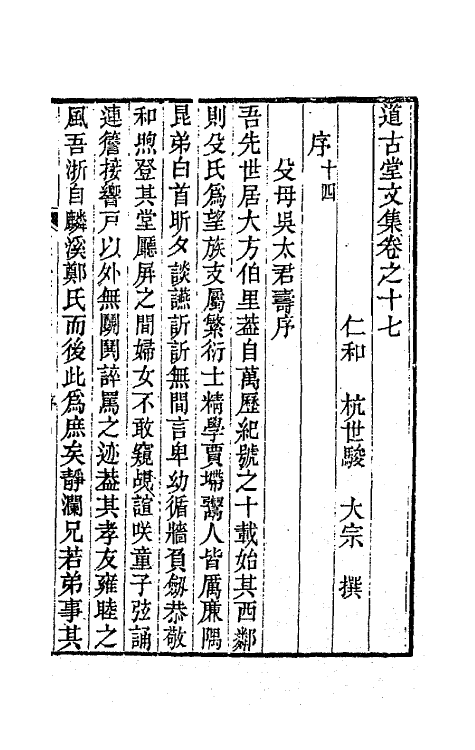 道古堂文集卷之十七
仁和 杭世駿 大宗 撰
序十四
殳母吳太君壽序
吾先世居大方伯里葢自萬歷紀號之十載始其西鄰
則殳氏爲望族支屬繁衍士精學賈墆鬻人皆厲廉隅
昆弟白首昕夕談讌訢訢無間言卑幼循牆負劔恭敬
和煦登其堂廳屏之間婦女不敢窺覘諠咲童子弦誦
連簷接響戸以外無鬭鬩誶罵之迹葢其孝友雍睦之
風吾浙自麟溪鄭氏而後此爲庶矣靜瀾兄若弟事其